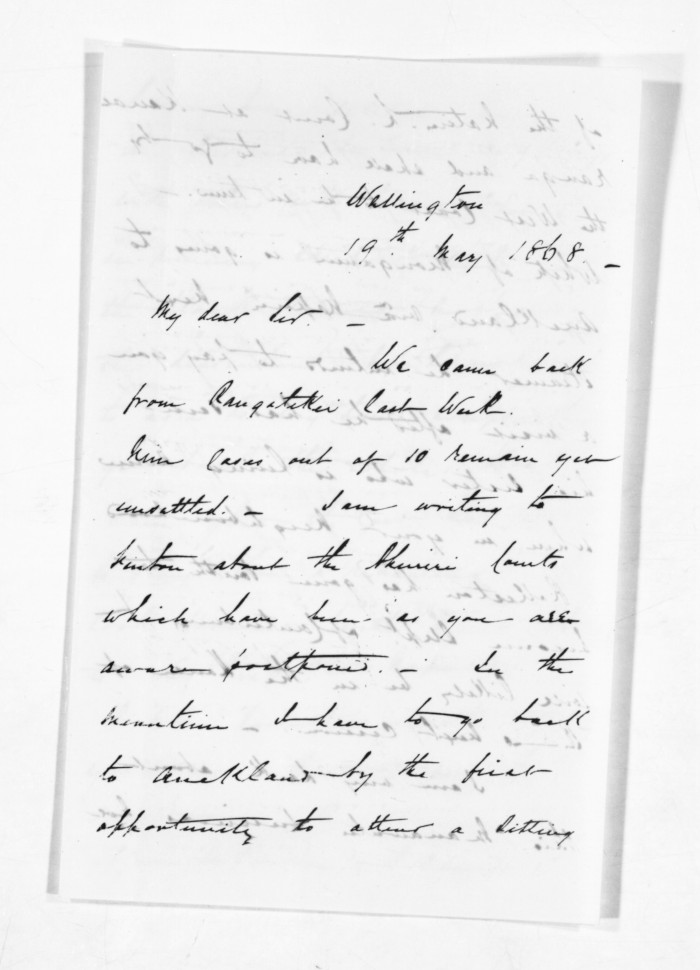 Wellington
19th May 1868. -
My dear Sir. -
We came back
from Rangitikei last Week.
Nine Cases out of 10 remain yet
unsettled. - I am writing to
about the Ahuriri Courts
which have been as you are
aware postponed. - In the
meantime I have to go back
to Auckland by the first
opportunity to attend a Sitting